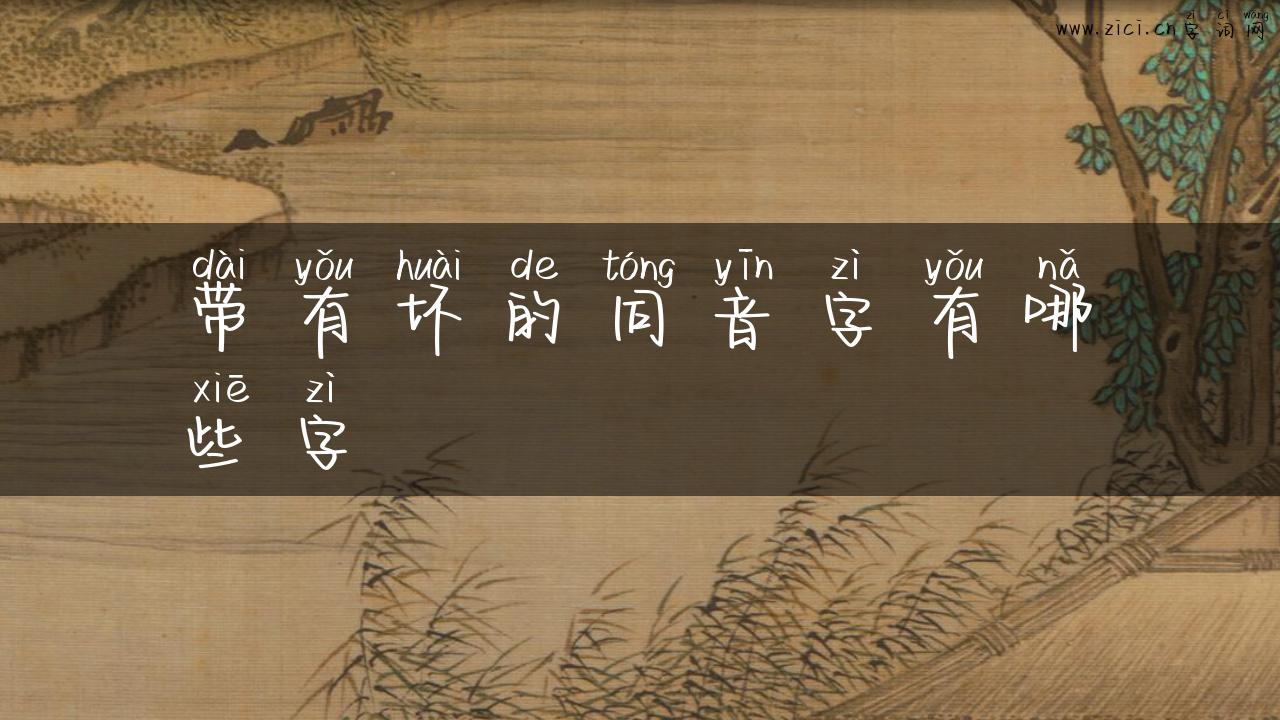 zì cí wǎng
www.zici.cn字词网
dài yǒu huài de tóng yīn zì yǒu nǎ
带有坏的同音字有哪
xiē zì
些字